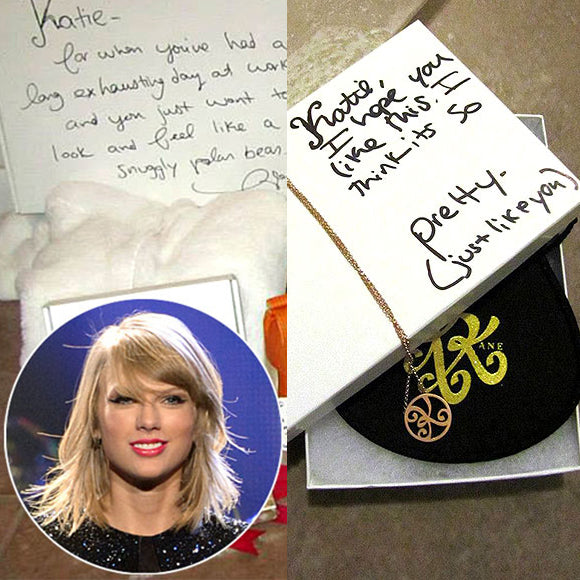 Katie-
for when you've had a
long exhausting day at work
and you just want to
look and feel like a
snuggly polar bear.
Katie,
I hope you
like this. I
think it's so
pretty-
(just like you)
KANE